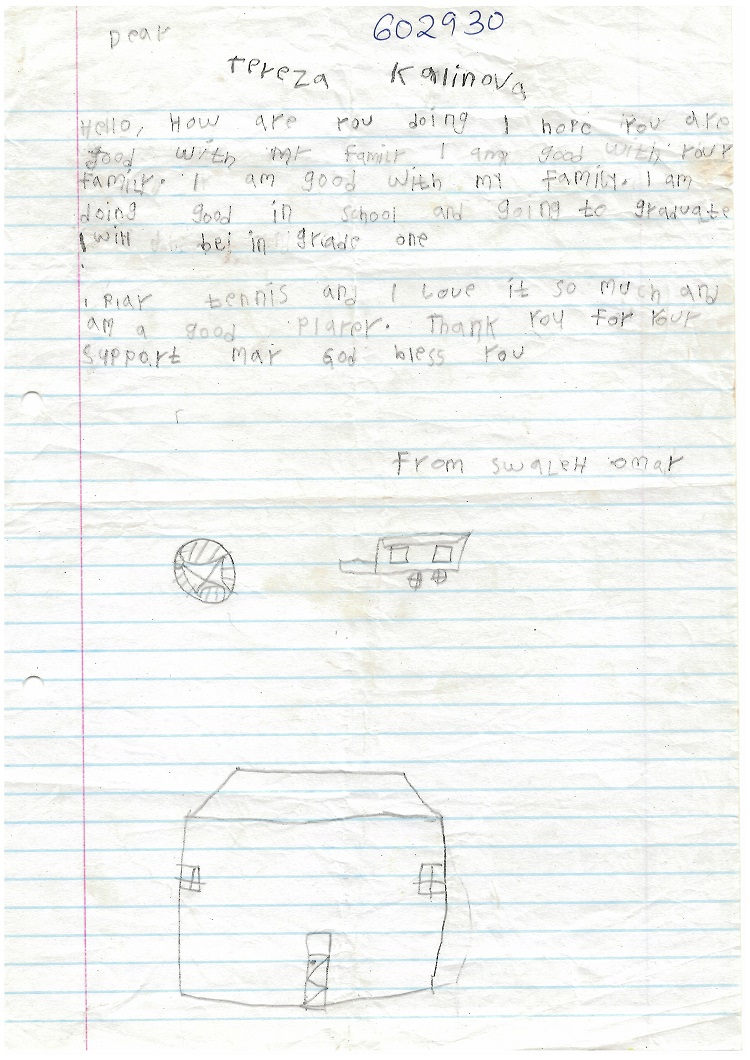 Dear 602930
Tereza Kalinova
Hello, How are you doing I hope you are
good with my family I am good with your
family. I am good with my family. I am
doing good in school and going to graduate
I will bei in grade one
I play tennis and I Love it so much and
am a good player. Thank you for your
support may God bless you
From swaleH omar